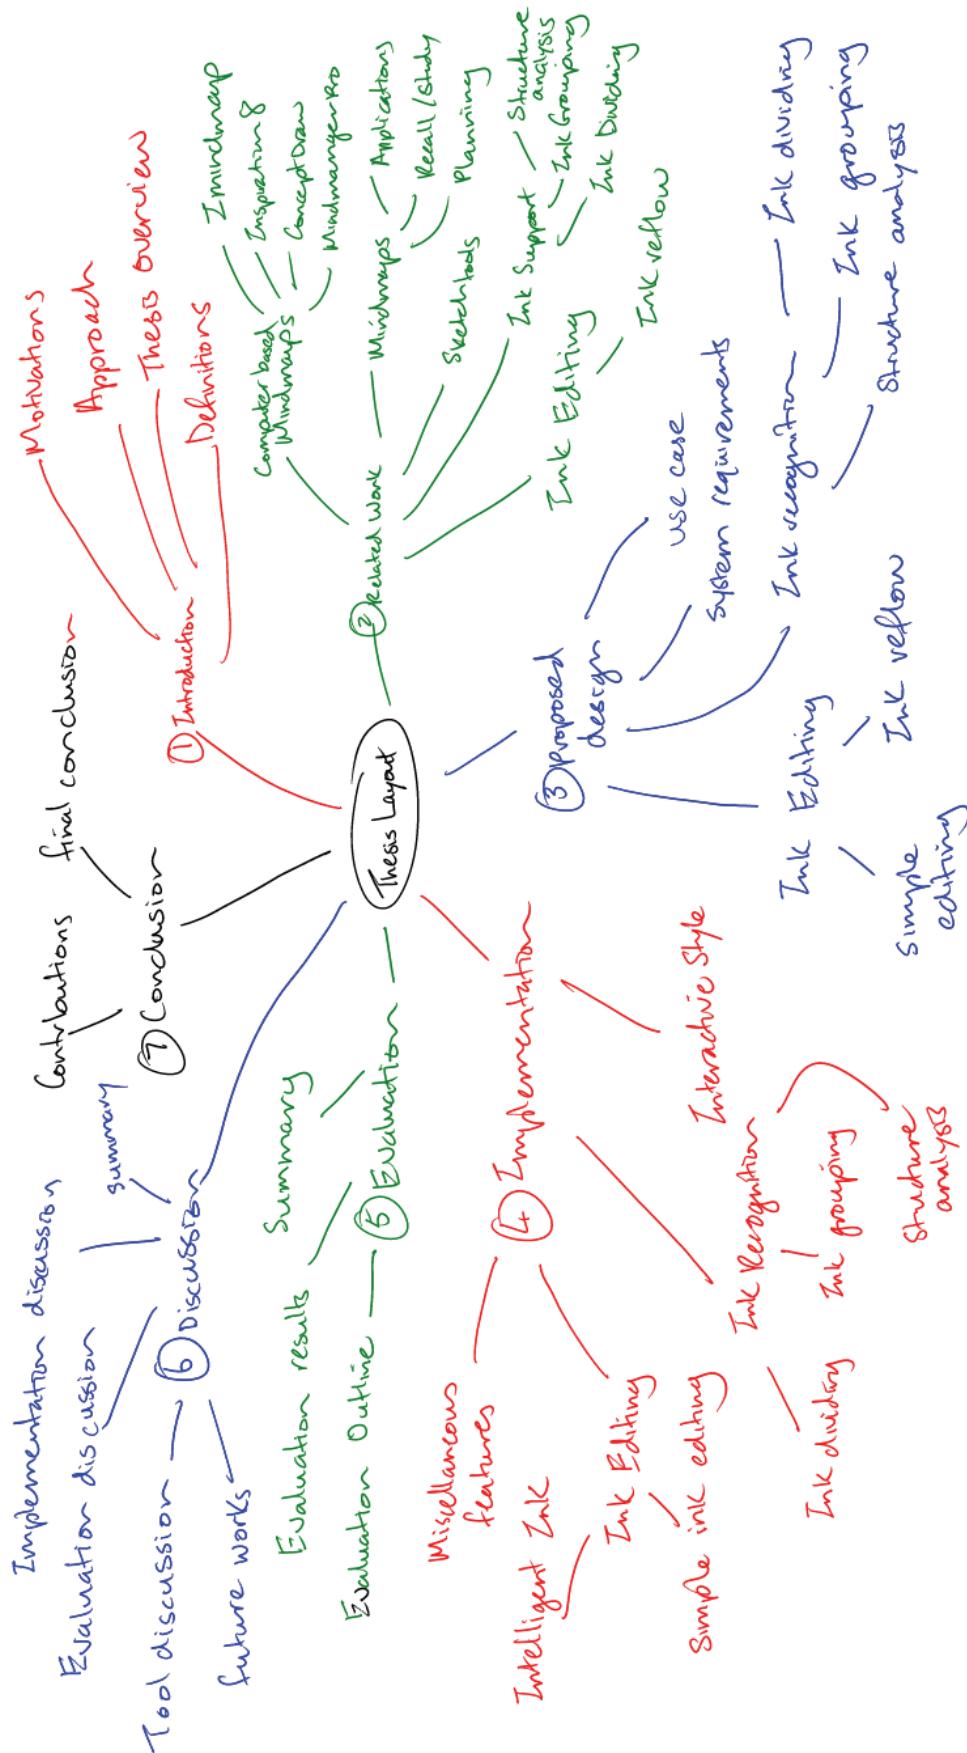 Thesis Layout
① Introduction
Motivations
Approach
Thesis overview
Definitions
② Related Work
Computer based
Mindmaps
Imindmap
Inspiration 8
ConceptDraw
MindmangerPro
Mindmaps
Applications
Recall/Study
Planning
Sketchtools
Ink Support
Structure
analysis
Ink Grouping
Ink Dividing
Ink Editing
Ink reflow
③ Proposed
design
use case
System requirements
Ink recognition
Ink dividing
Ink grouping
Structure analysis
Ink Editing
Ink reflow
Simple
editing
④ Implementation
Interactive Style
Ink Recognition
Structure
analysis
Ink grouping
Ink dividing
Ink Editing
Simple ink editing
Intelligent Ink
Miscellaneous
features
⑤ Evaluation
Evaluation Outline
Evaluation results
Summary
⑥ Discussion
future works
Tool discussion
Evaluation discussion
Implementation discussion
Summary
⑦ Conclusion
Contributions
final conclusion